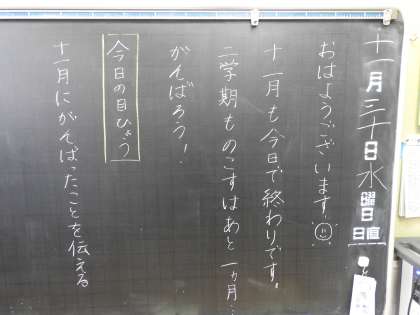 十一月三十日水曜日
日直
おはようございます!
十一月も今日で終わりです。
二学期ものこすはあと一ヵ月…
がんばろう!
今日の目ひょう
十一月にがんばったことを伝える